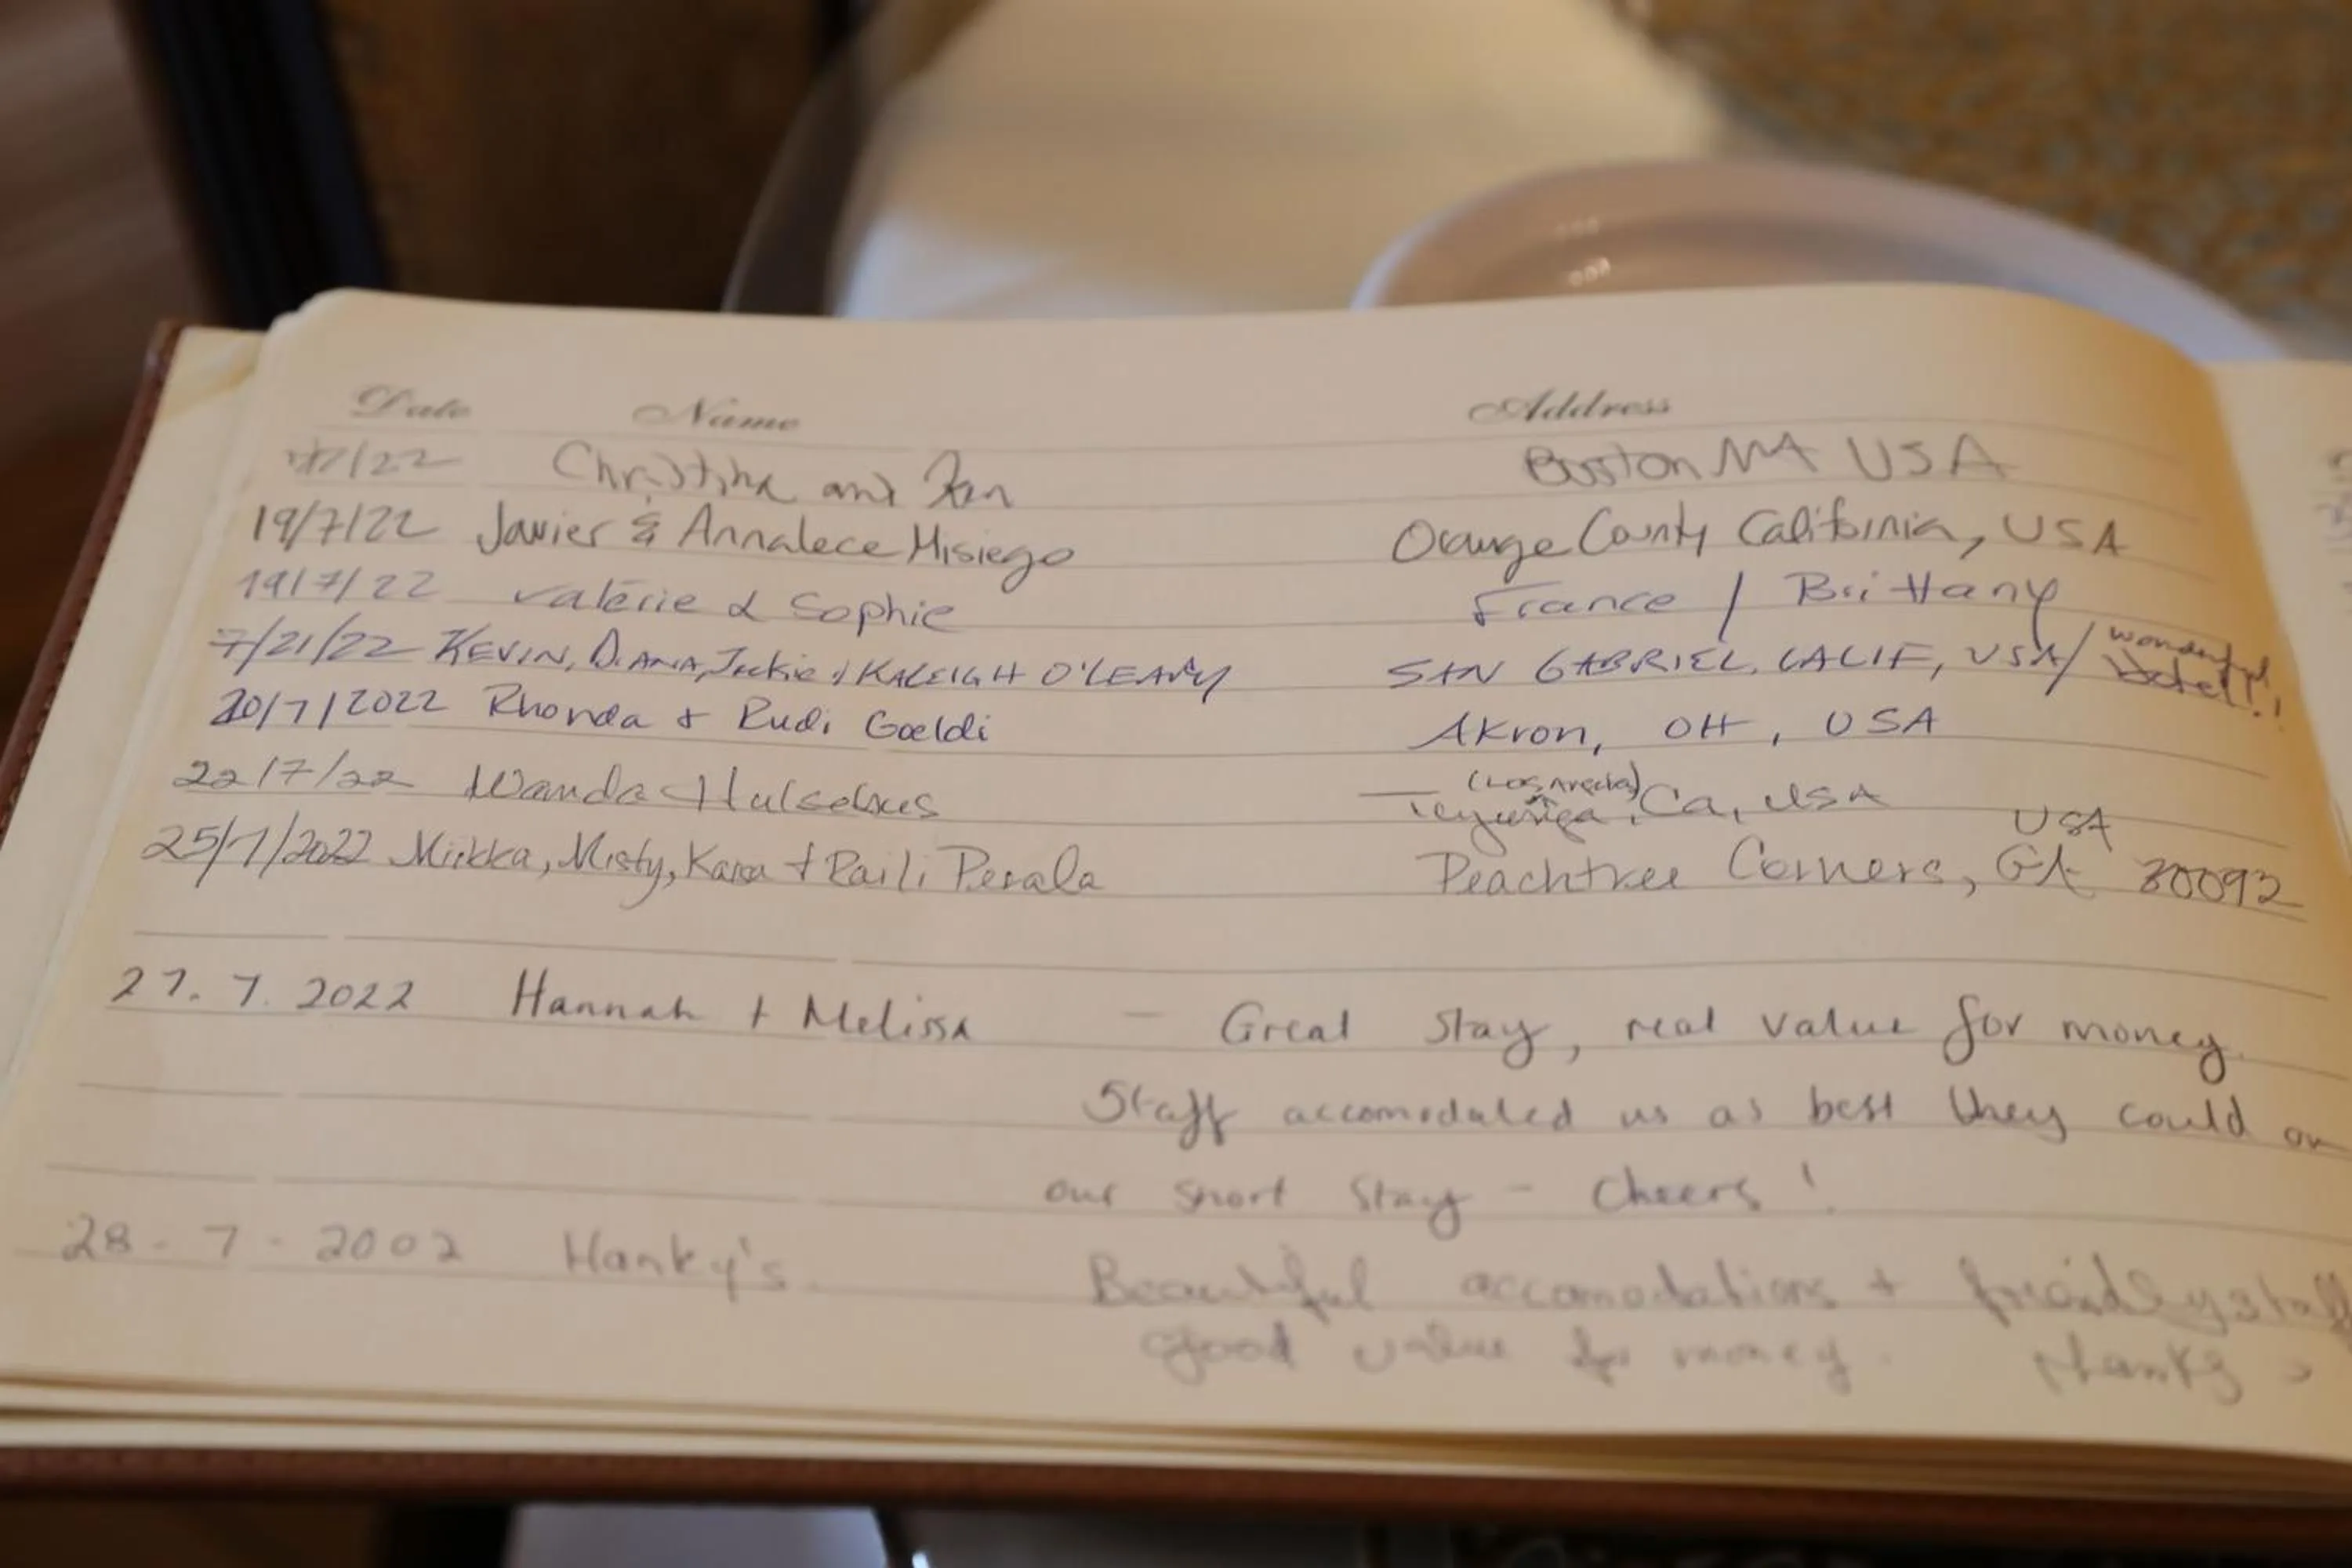 Date Name Address
/22 Christine and Boston MA USA
19/7/22 Javier & Annalece Misiego Orange County California, USA
19/7/22 Valérie & Sophie France / Brittany
7/21/22 KEVIN, DIANA, Jackie & KALEIGH O'LEARY SAN GABRIEL, CALIF, USA / wonderful
Hotel!!
20/7/2022 Rhonda & Rudi Goeldi Akron, OH, USA
22/7/22 Wanda Ca, USA
USA
25/7/2022 Miikka, Misty, Kara + Raili Perala Peachtree Corners, GA 30092
27.7.2022 Hannah + Melissa - Great stay, real value for money.
Staff accomodated us as best they could on
our short stay - Cheers!
28-7-2002 Hanky's. Beautiful accomodations + friendly staff
good value for money. thanks